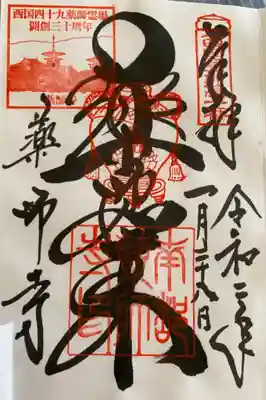 奉拝
令和二年
一月二十八日
薬師如来
薬師寺
西国四十九薬師霊場
開創三十周年